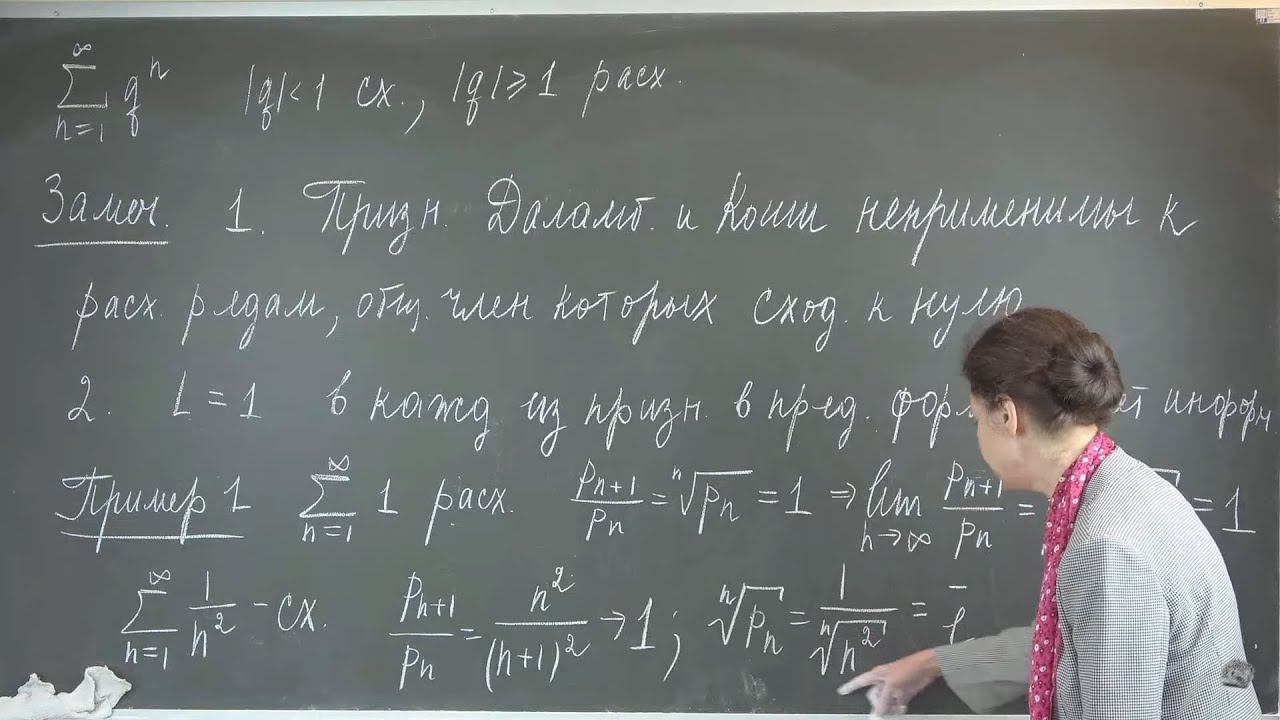 ∑_{n=1}^{∞} q^n |q|<1 сх., |q|⩾1 расх.
Замеч. 1. Призн. Даламб. и Коши неприменимы к
расх. рядам, общ. член которых сход. к нулю
2. L = 1 в кажд из призн. в пред. форм инфорн.
Пример 1 ∑_{n=1}^{∞} 1 расх. p_{n+1}/p_n = ⁿ√p_n = 1 ⇒ lim_{n→∞} p_{n+1}/p_n = = 1
∑_{n=1}^{∞} 1/n² - сх. p_{n+1}/p_n = n²/(n+1)² → 1; ⁿ√p_n = 1/ⁿ√n² =